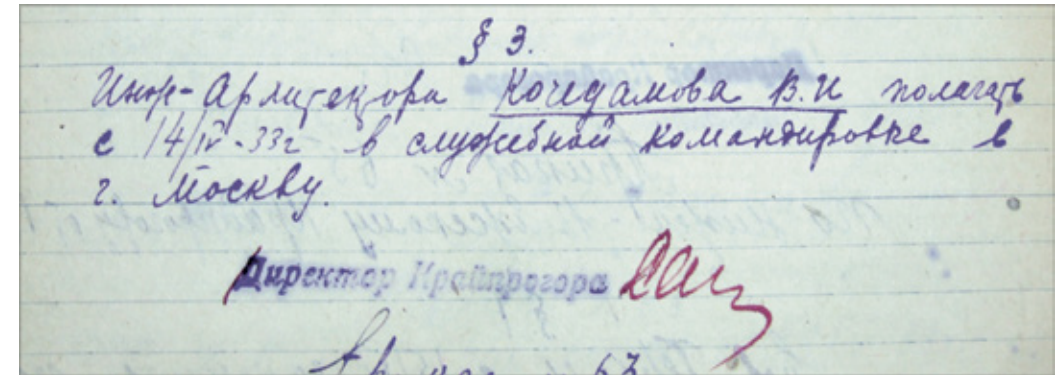 § 3.
Инж-Архитектора Кочедамова В.И полагать
с 14/IV-33г в служебной командировке в
г. Москву.
Директор Крайпрогора